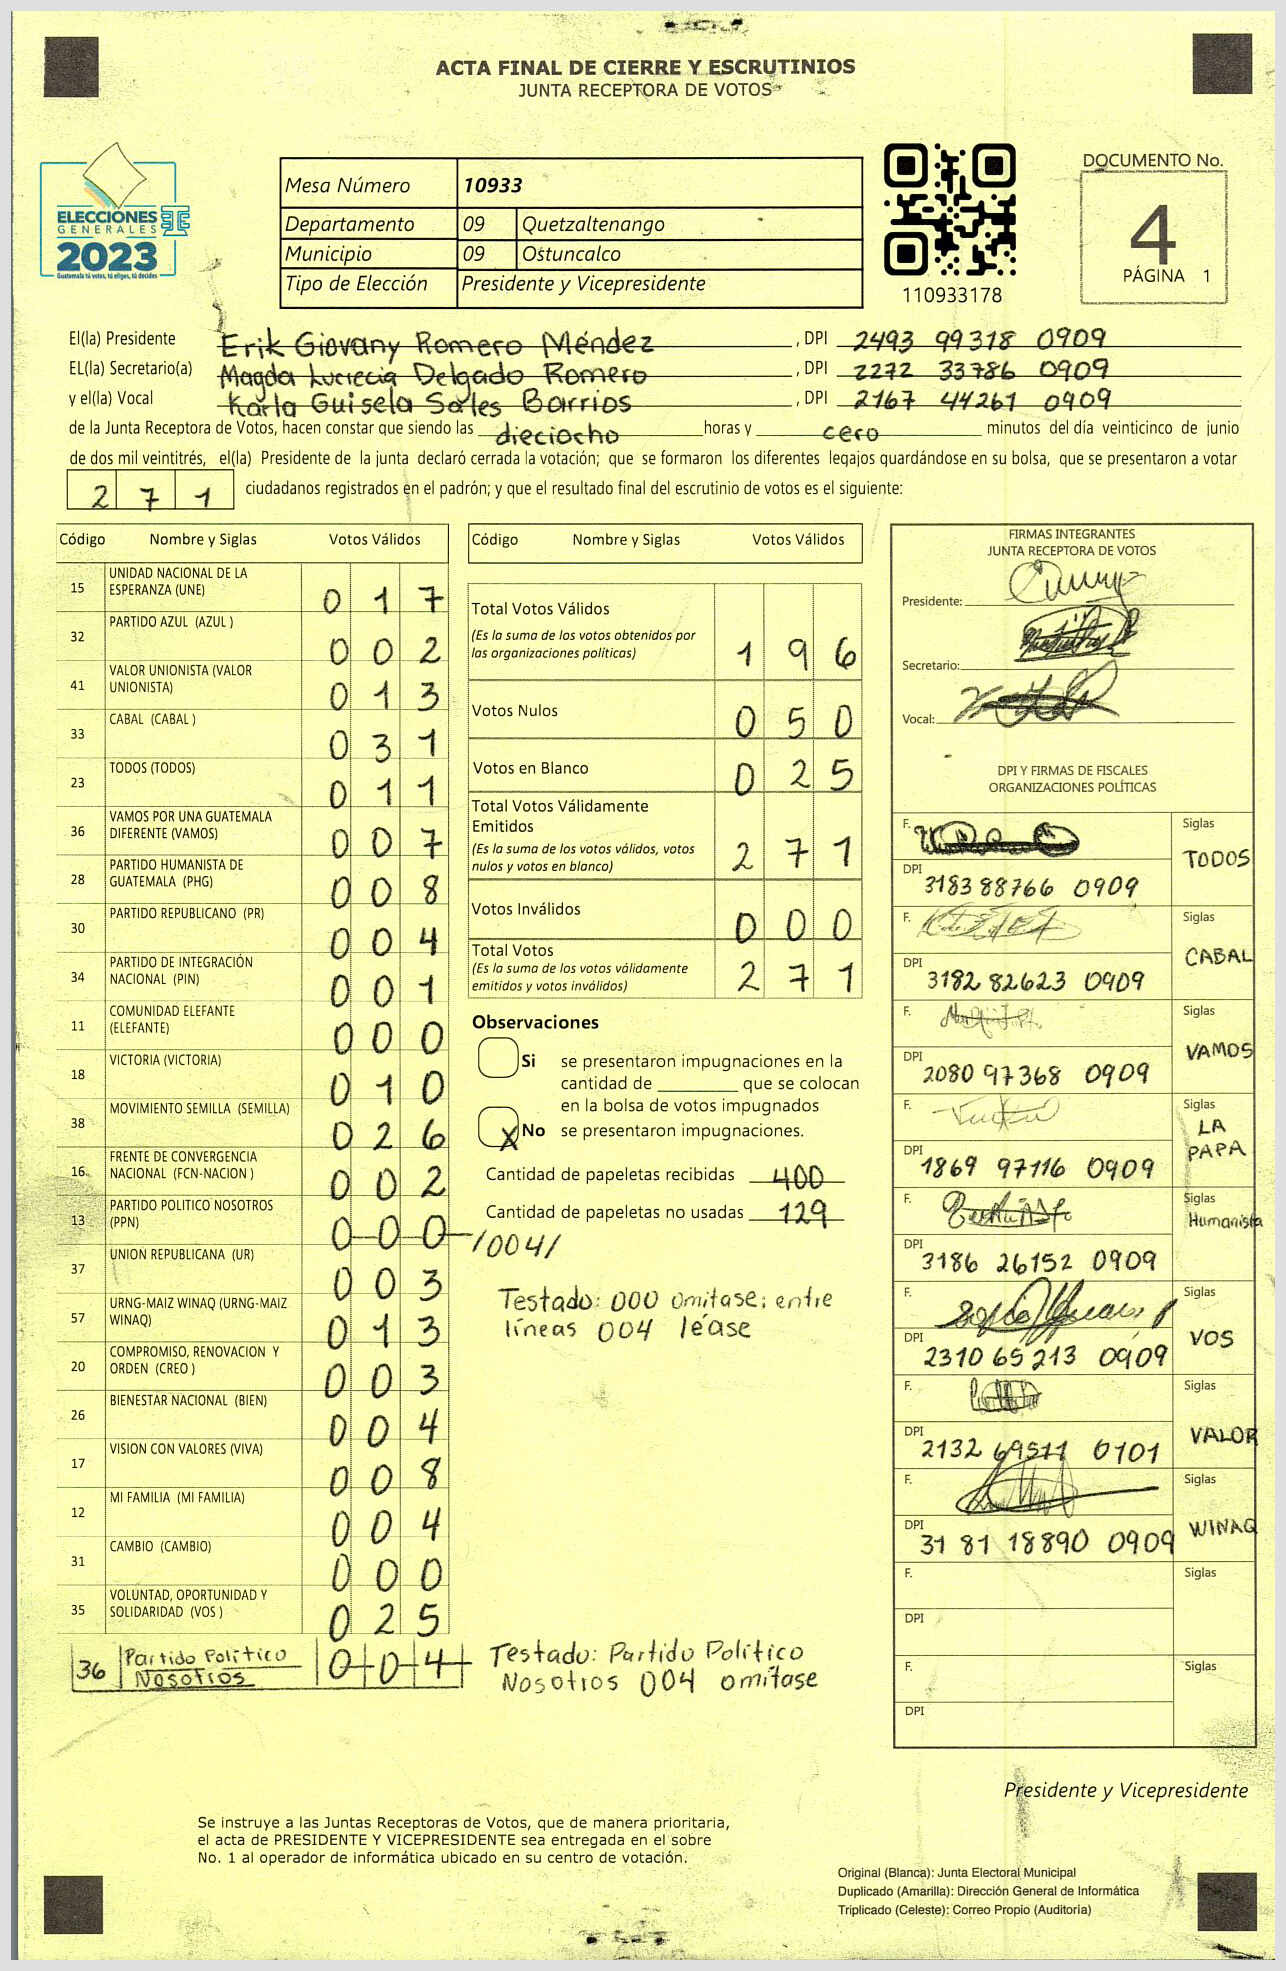 ACTA FINAL DE CIERRE Y ESCRUTINIOS
JUNTA RECEPTORA DE VOTOS
ELECCIONES
GENERALES
2023
Guatemala tú votas, tú eliges, tú decides
Mesa Número 10933
Departamento 09 Quetzaltenango
Municipio 09 Ostuncalco
Tipo de Elección Presidente y Vicepresidente
110933178
DOCUMENTO No.
4
PÁGINA 1
El(la) Presidente Erik Giovany Romero Méndez , DPI 2493 99318 0909
EL(la) Secretario(a) Magda Lucrecia Delgado Romero , DPI 2272 33786 0909
y el(la) Vocal Karla Guisela Sales Barrios , DPI 2167 44261 0909
de la Junta Receptora de Votos, hacen constar que siendo las dieciocho horas y cero minutos del día veinticinco de junio
de dos mil veintitrés, el(la) Presidente de la junta declaró cerrada la votación; que se formaron los diferentes legajos guardándose en su bolsa, que se presentaron a votar
2 7 1 ciudadanos registrados en el padrón; y que el resultado final del escrutinio de votos es el siguiente:
Código Nombre y Siglas Votos Válidos
15 UNIDAD NACIONAL DE LA
ESPERANZA (UNE) 0 1 7
32 PARTIDO AZUL (AZUL ) 0 0 2
41 VALOR UNIONISTA (VALOR
UNIONISTA) 0 1 3
33 CABAL (CABAL ) 0 3 1
23 TODOS (TODOS) 0 1 1
36 VAMOS POR UNA GUATEMALA
DIFERENTE (VAMOS) 0 0 7
28 PARTIDO HUMANISTA DE
GUATEMALA (PHG) 0 0 8
30 PARTIDO REPUBLICANO (PR) 0 0 4
34 PARTIDO DE INTEGRACIÓN
NACIONAL (PIN) 0 0 1
11 COMUNIDAD ELEFANTE
(ELEFANTE) 0 0 0
18 VICTORIA (VICTORIA) 0 1 0
38 MOVIMIENTO SEMILLA (SEMILLA) 0 2 6
16 FRENTE DE CONVERGENCIA
NACIONAL (FCN-NACION ) 0 0 2
13 PARTIDO POLITICO NOSOTROS
(PPN) 0 0 0 /004/
37 UNION REPUBLICANA (UR) 0 0 3
57 URNG-MAIZ WINAQ (URNG-MAIZ
WINAQ) 0 1 3
20 COMPROMISO, RENOVACION Y
ORDEN (CREO ) 0 0 3
26 BIENESTAR NACIONAL (BIEN) 0 0 4
17 VISION CON VALORES (VIVA) 0 0 8
12 MI FAMILIA (MI FAMILIA) 0 0 4
31 CAMBIO (CAMBIO) 0 0 0
35 VOLUNTAD, OPORTUNIDAD Y
SOLIDARIDAD (VOS ) 0 2 5
36 Partido Político
Nosotros 0 0 4
Código Nombre y Siglas Votos Válidos
Total Votos Válidos
(Es la suma de los votos obtenidos por
las organizaciones políticas) 1 9 6
Votos Nulos 0 5 0
Votos en Blanco 0 2 5
Total Votos Válidamente
Emitidos
(Es la suma de los votos válidos, votos
nulos y votos en blanco) 2 7 1
Votos Inválidos 0 0 0
Total Votos
(Es la suma de los votos válidamente
emitidos y votos inválidos) 2 7 1
Observaciones
Si se presentaron impugnaciones en la
cantidad de ________ que se colocan
en la bolsa de votos impugnados
X No se presentaron impugnaciones.
Cantidad de papeletas recibidas 400
Cantidad de papeletas no usadas 129
Testado: 000 omítase: entre
líneas 004 léase
Testado: Partido Político
Nosotros 004 omítase
FIRMAS INTEGRANTES
JUNTA RECEPTORA DE VOTOS
Presidente:
Secretario:
Vocal:
DPI Y FIRMAS DE FISCALES
ORGANIZACIONES POLÍTICAS
F. Siglas
TODOS
DPI 3183 88766 0909
F. Siglas
CABAL
DPI 3182 82623 0909
F. Siglas
VAMOS
DPI 2080 97368 0909
F. Siglas
LA
PAPA
DPI 1869 97116 0909
F. Siglas
Humanista
DPI 3186 26152 0909
F. Siglas
VOS
DPI 2310 65 213 0909
F. Siglas
VALOR
DPI 2132 69511 0101
F. Siglas
WINAQ
DPI 31 81 18890 0909
F. Siglas
DPI
F. Siglas
DPI
Presidente y Vicepresidente
Se instruye a las Juntas Receptoras de Votos, que de manera prioritaria,
el acta de PRESIDENTE Y VICEPRESIDENTE sea entregada en el sobre
No. 1 al operador de informática ubicado en su centro de votación.
Original (Blanca): Junta Electoral Municipal
Duplicado (Amarilla): Dirección General de Informática
Triplicado (Celeste): Correo Propio (Auditoría)